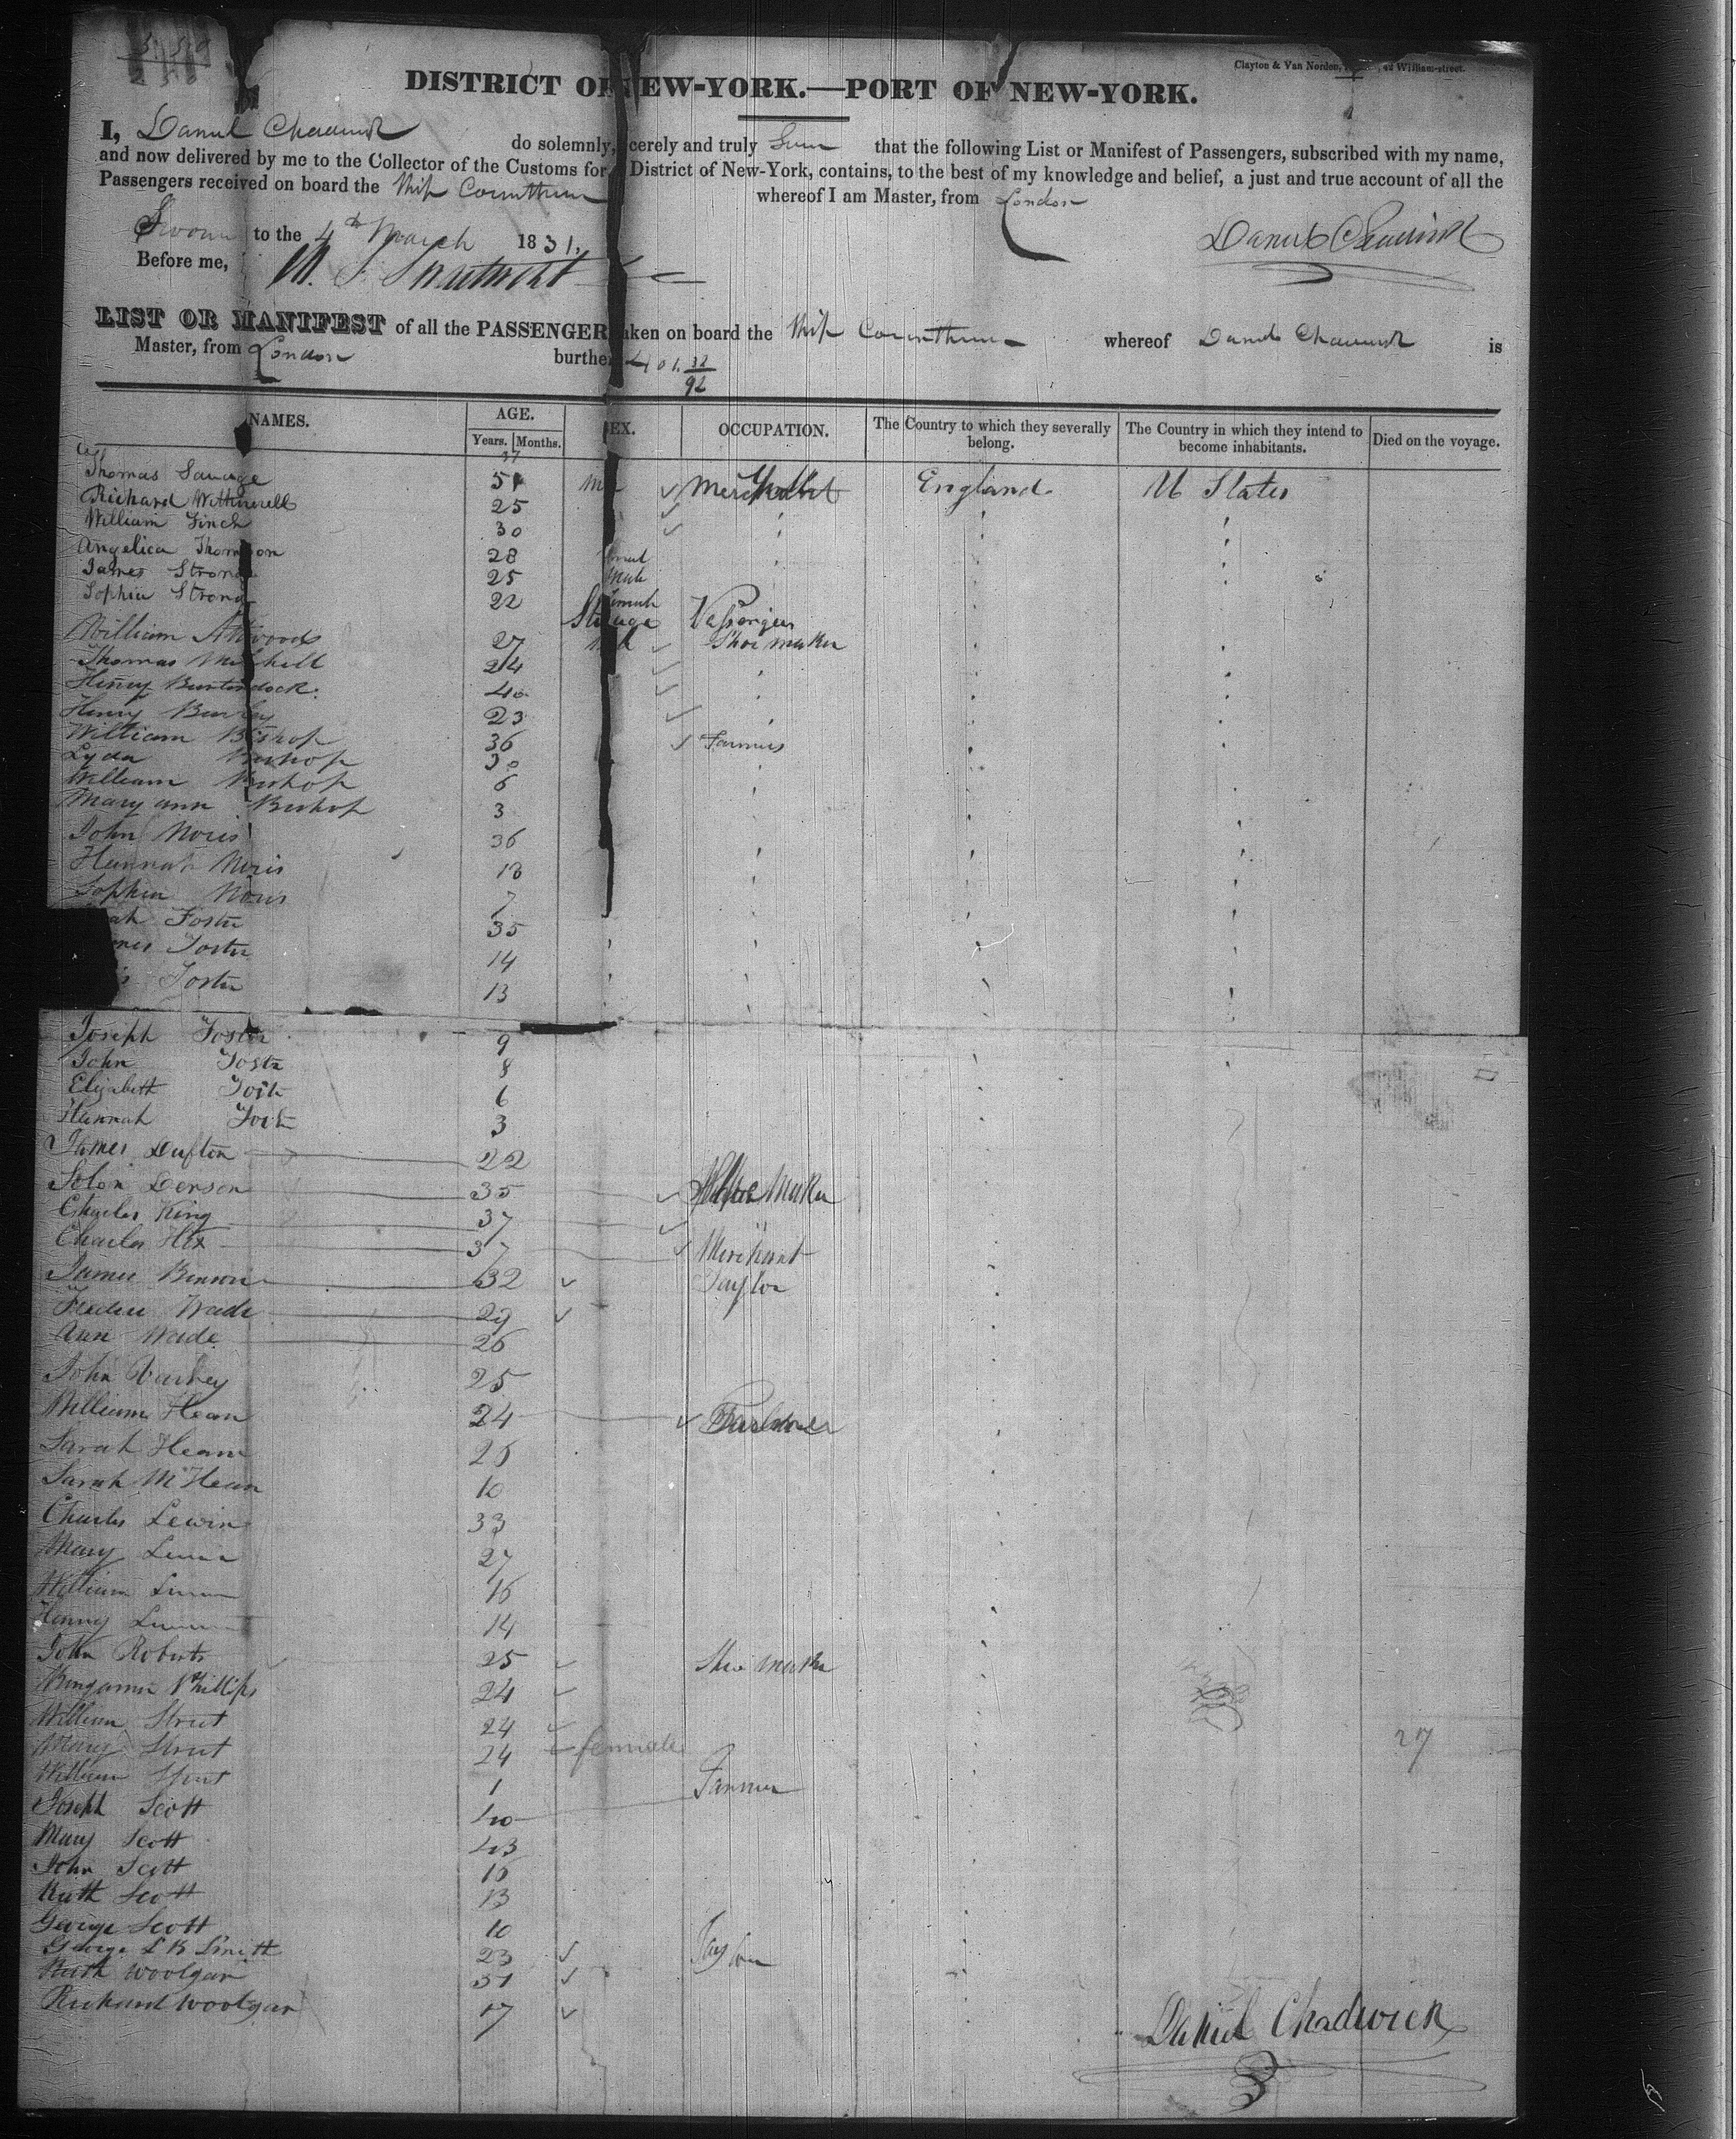 Clayton & Van Norden, 42 William-street.
DISTRICT OF NEW-YORK.—PORT OF NEW-YORK.
I, Daniel Chadwick do solemnly, cerely and truly that the following List or Manifest of Passengers, subscribed with my name,
and now delivered by me to the Collector of the Customs for District of New-York, contains, to the best of my knowledge and belief, a just and true account of all the
Passengers received on board the Ship Corinthian whereof I am Master, from London
Sworn to the 4th March 1831. Daniel Chadwick
Before me, M. S. Swartwout
LIST OR MANIFEST of all the PASSENGER aken on board the Ship Corinthian whereof Daniel Chadwick is
Master, from London burthen 401 32/92
NAMES. AGE. EX. OCCUPATION. The Country to which they severally belong. The Country in which they intend to become inhabitants. Died on the voyage.
Years. Months.
Thomas Savage 51 Merchant England U States
Richard 25
William Finch 30
Angelica Thompson 28
James Strong 25 Male
Sophia Strong 22
Steerage Passengers
William Attwood 27 Shoe maker
Thomas Mitchell 24
Henry 40
Henry 23
William Bishop 36 Farmers
Lyda Bishop 30
William Bishop 6
Mary ann Bishop 3
John Noris 36
Hannah Noris 18
Sophia Noris 7
ah Foster 35
mes Foster 14
s Foster 13
Joseph Foster 9
John Foster 8
Elizabeth Foster 6
Hannah Foster 3
James Dufton 22
Solon Denson 35 Shoe Maker
Charles King 37
Charles Hix 37 Merchant
James Benson 32 Taylor
Wade 29
Ann Wade 26
John 25
William Hearn 24
Sarah Hearn 26
Sarah M Hearn 10
Charles Lewin 33
Mary Lewin 27
William Lewin 16
Henry Lewin 14
John Roberts 25 Shoe Maker
Benjamin Phillips 24
William Street 24
Mary Street 24 female 27
William Street 1 Farmer
Joseph Scott 40
Mary Scott 43
John Scott 15
Ruth Scott 13
George Scott 10
George L B Smith 23 Taylor
Ruth Woolgar 51
Richard Woolgar 17
Daniel Chadwick